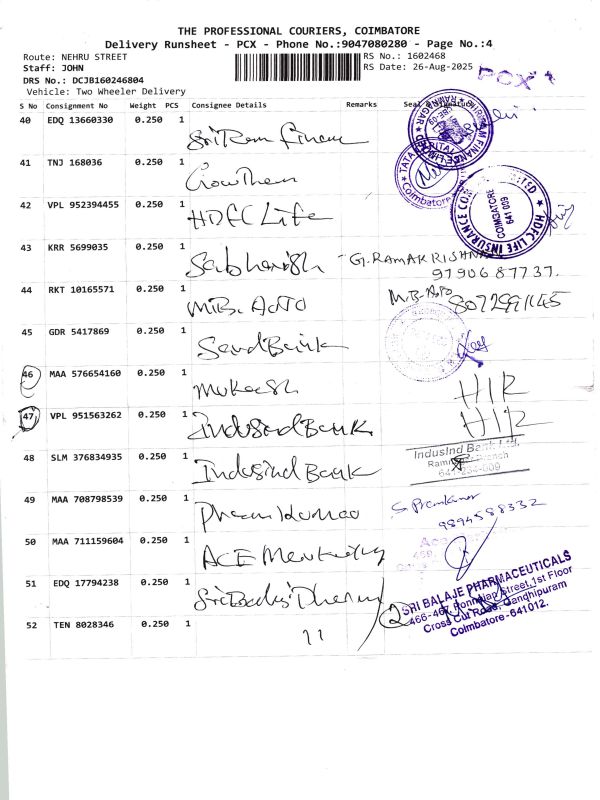 THE PROFESSIONAL COURIERS, COIMBATORE
Delivery Runsheet - PCX - Phone No.:9047080280 - Page No.:4
Route: NEHRU STREET RS No.: 1602468
Staff: JOHN RS Date: 26-Aug-2025
DRS No.: DCJB160246804 PCX
Vehicle: Two Wheeler Delivery
S No Consignment No Weight PCS Consignee Details Remarks Seal & Signature
40 EDQ 13660330 0.250 1 Sri Ram Finan
41 TNJ 168036 0.250 1
Coimbatore
42 VPL 952394455 0.250 1 HDFC Life
HDFC LIFE INSURANCE COM LIMITED
COIMBATORE
641 009
43 KRR 5699035 0.250 1 G. RAMAKRISHNAN
9790687737.
44 RKT 10165571 0.250 1 M.B. AUTO M.B. Auto
8072991145
45 GDR 5417869 0.250 1 Bank
46 MAA 576654160 0.250 1 Mukesh H12
47 VPL 951563262 0.250 1 IndusInd Bank H12
48 SLM 376834935 0.250 1 IndusInd Bank
IndusInd Bank Ltd.
Branch
49 MAA 708798539 0.250 1 S. Premkumar
9894588332
50 MAA 711159604 0.250 1 ACE
51 EDQ 17794238 0.250 1 Sri Balaji Pharm
SRI BALAJE PHARMACEUTICALS
466-467, Ponnaian Street, 1st Floor
Cross Cut Road, Gandhipuram
Coimbatore-641012.
52 TEN 8028346 0.250 1 11